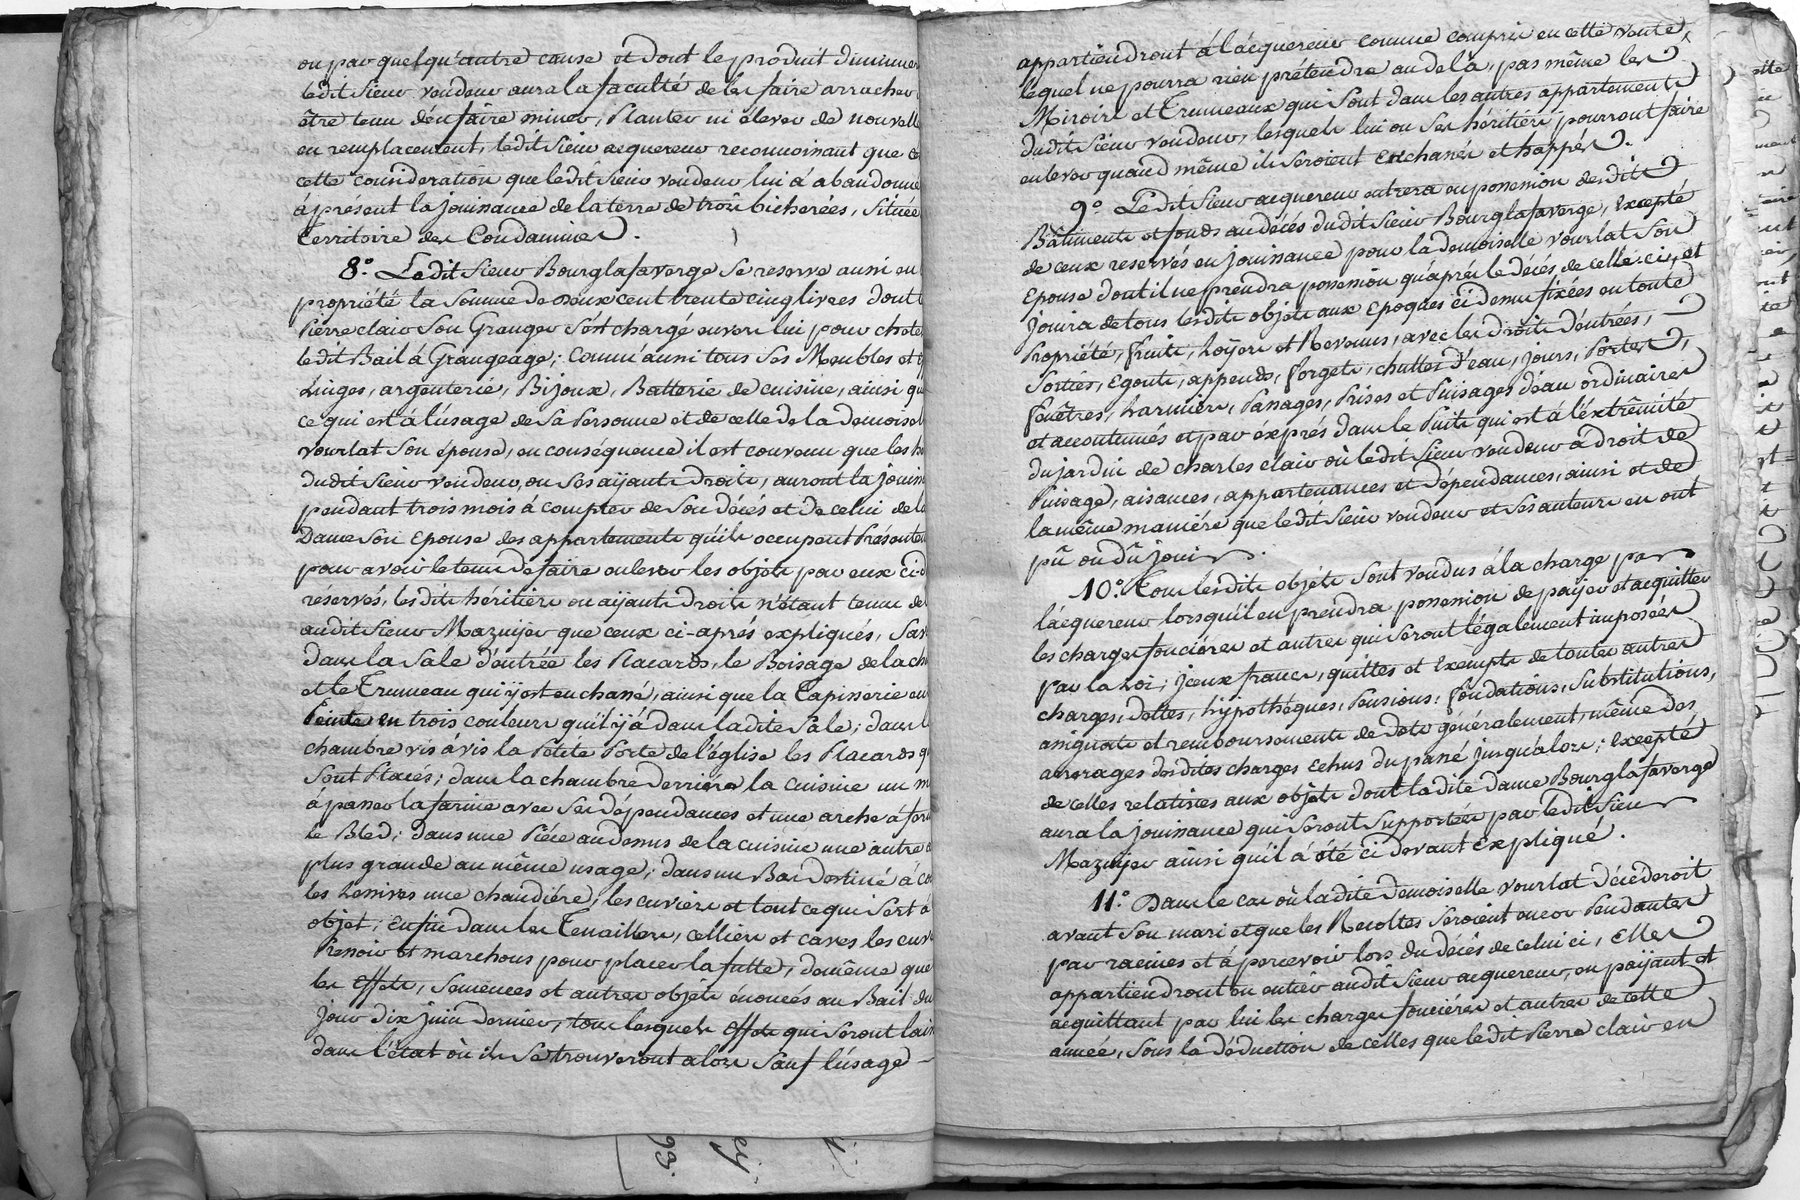 ou par quelqu'autre cause et dont le produit diminuer
ledit Sieur vendeur aura la faculté de les faire arracher
être tenu d'en faire miner, Planter ni élever de nouvelle
en remplacement, ledit Sieur acquereur reconnoissant que c
cette consideration que ledit Sieur vendeur lui a abandonné
à présent la jouissance de la terre de trois bicherées, Située
territoire des Condamines.
8.° Ledit Sieur Bourglafaverge Se reserve aussi en
propriété la Somme de deux cent trente cinq livres dont
Pierre clair Son Granger S'est chargé envers lui pour chetel
ledit Bail à Grangeage; comm'aussi tous Ses Meubles et
Linges, argenterie, Bijoux, Batterie de cuisine, ainsi qu
ce qui est à l'usage de Sa Personne et de celle de la demoisel
vourlat Son épouse, en conséquence il est convenu que les h
dudit Sieur vendeur, ou Ses aÿants droits, auront la jouiss
pendant trois mois à compter de Son décés et de celui de l
Dame Son Epouse des appartements qu'ils occupent Présentem
pour avoir le tems de faire enlever les objets par eux ci-d
réservés, lesdits héritiers ou aÿants droits n'étant tenu de
audit Sieur Mazuÿer que ceux ci-aprés expliqués, Sav
Dans la Sale d'entrée les Placards, le Boisage de la ch
et le Trumeau qui ÿ est enchassé, ainsi que la Tapisserie en
Peinte en trois couleurs qu'il ÿ a dans ladite Sale; dans l
chambre vis à vis la Petite Porte de l'église les Placards q
Sont Placés; dans la chambre derriére la cuisine un m
à passer la farine avec Ses dépendances et une arche à
le Bled; dans une Piéce audessus de la cuisine une autre
plus grande au même usage; dans un Bas destiné à
les Lessives une chaudiére, les cuviers et tout ce qui Sert à
objet; enfin dans les Tenailliers, celliers et caves les cuv
Pressoir et marchons pour placer la futte, de même que
les Effets, Semences et autres objets énoncés au Bail du
jour dix juin dernier, tous lesquels Effets qui Seront laiss
dans l'état où ils Se trouveront alors Sauf l'usage
appartiendront à l'acquereur comme compris en cette vente,
lequel ne pourra rien prétendre au delà, pas même les
Miroirs et Trumeaux qui Sont dans les autres appartements
dudit Sieur vendeur, lesquels lui ou Ses héritiers pourront faire
enlever quand même ils Seroient Enchassés et happés.
9.° Ledit Sieur acquereur entrera en possession desdits
Bâtiments et fonds au décés dudit Sieur Bourglafaverge, Excepté
de ceux reservés en jouissance pour la demoiselle vourlat Son
Epouse dont il ne prendra possession qu'aprés le décés de celle-ci, et
jouira de tous lesdits objets aux Epoques ci dessus fixées en toute
Propriété, fruits, Loÿers et Revenus, avec les droits d'entrées,
Sorties, Egouts, appends, forgets, chuttes d'eau, jours, Portes,
fenêtres, Larmiers, Passages, Prises et Puisages d'eau ordinaires
et accoutumés et par éxprés dans le Puits qui est à l'éxtrêmité
du jardin de charles clair où ledit Sieur vendeur a droit de
Puisage, aisances, appartenances et dépendances, ainsi et de
la même maniére que ledit Sieur vendeur et Ses auteurs en ont
pû ou dû jouir.
10.° Tous lesdits objets Sont vendus à la charge par
l'acquereur lorsqu'il en prendra possession de païer et acquitter
les charges fonciéres et autres qui Seront légalement imposées
par la Loi; iceux francs, quittes et Exempts de toutes autres
charges, dettes, hÿpothéques, Pensions, fondations, Substitutions,
assignats et remboursements de dots généralement, même des
arrerages desdites charges échus du passé jusqu'alors; Excepté
de celles relatives aux objets dont ladite dame Bourglafaverge
aura la jouissance qui Seront Supportées par ledit Sieur
Mazuÿer ainsi qu'il a été ci devant Expliqué.
11.° Dans le cas où ladite Demoiselle vourlat décéderoit
avant Son mari et que les Recoltes Seroient encor Pendantes
par racines et à percevoir lors du décés de celui ci, Elles
appartiendront en entier audit Sieur acquereur, en païant et
acquittant par lui les charges fonciéres et autres de cette
année, Sous la déduction de celles que ledit Pierre clair en